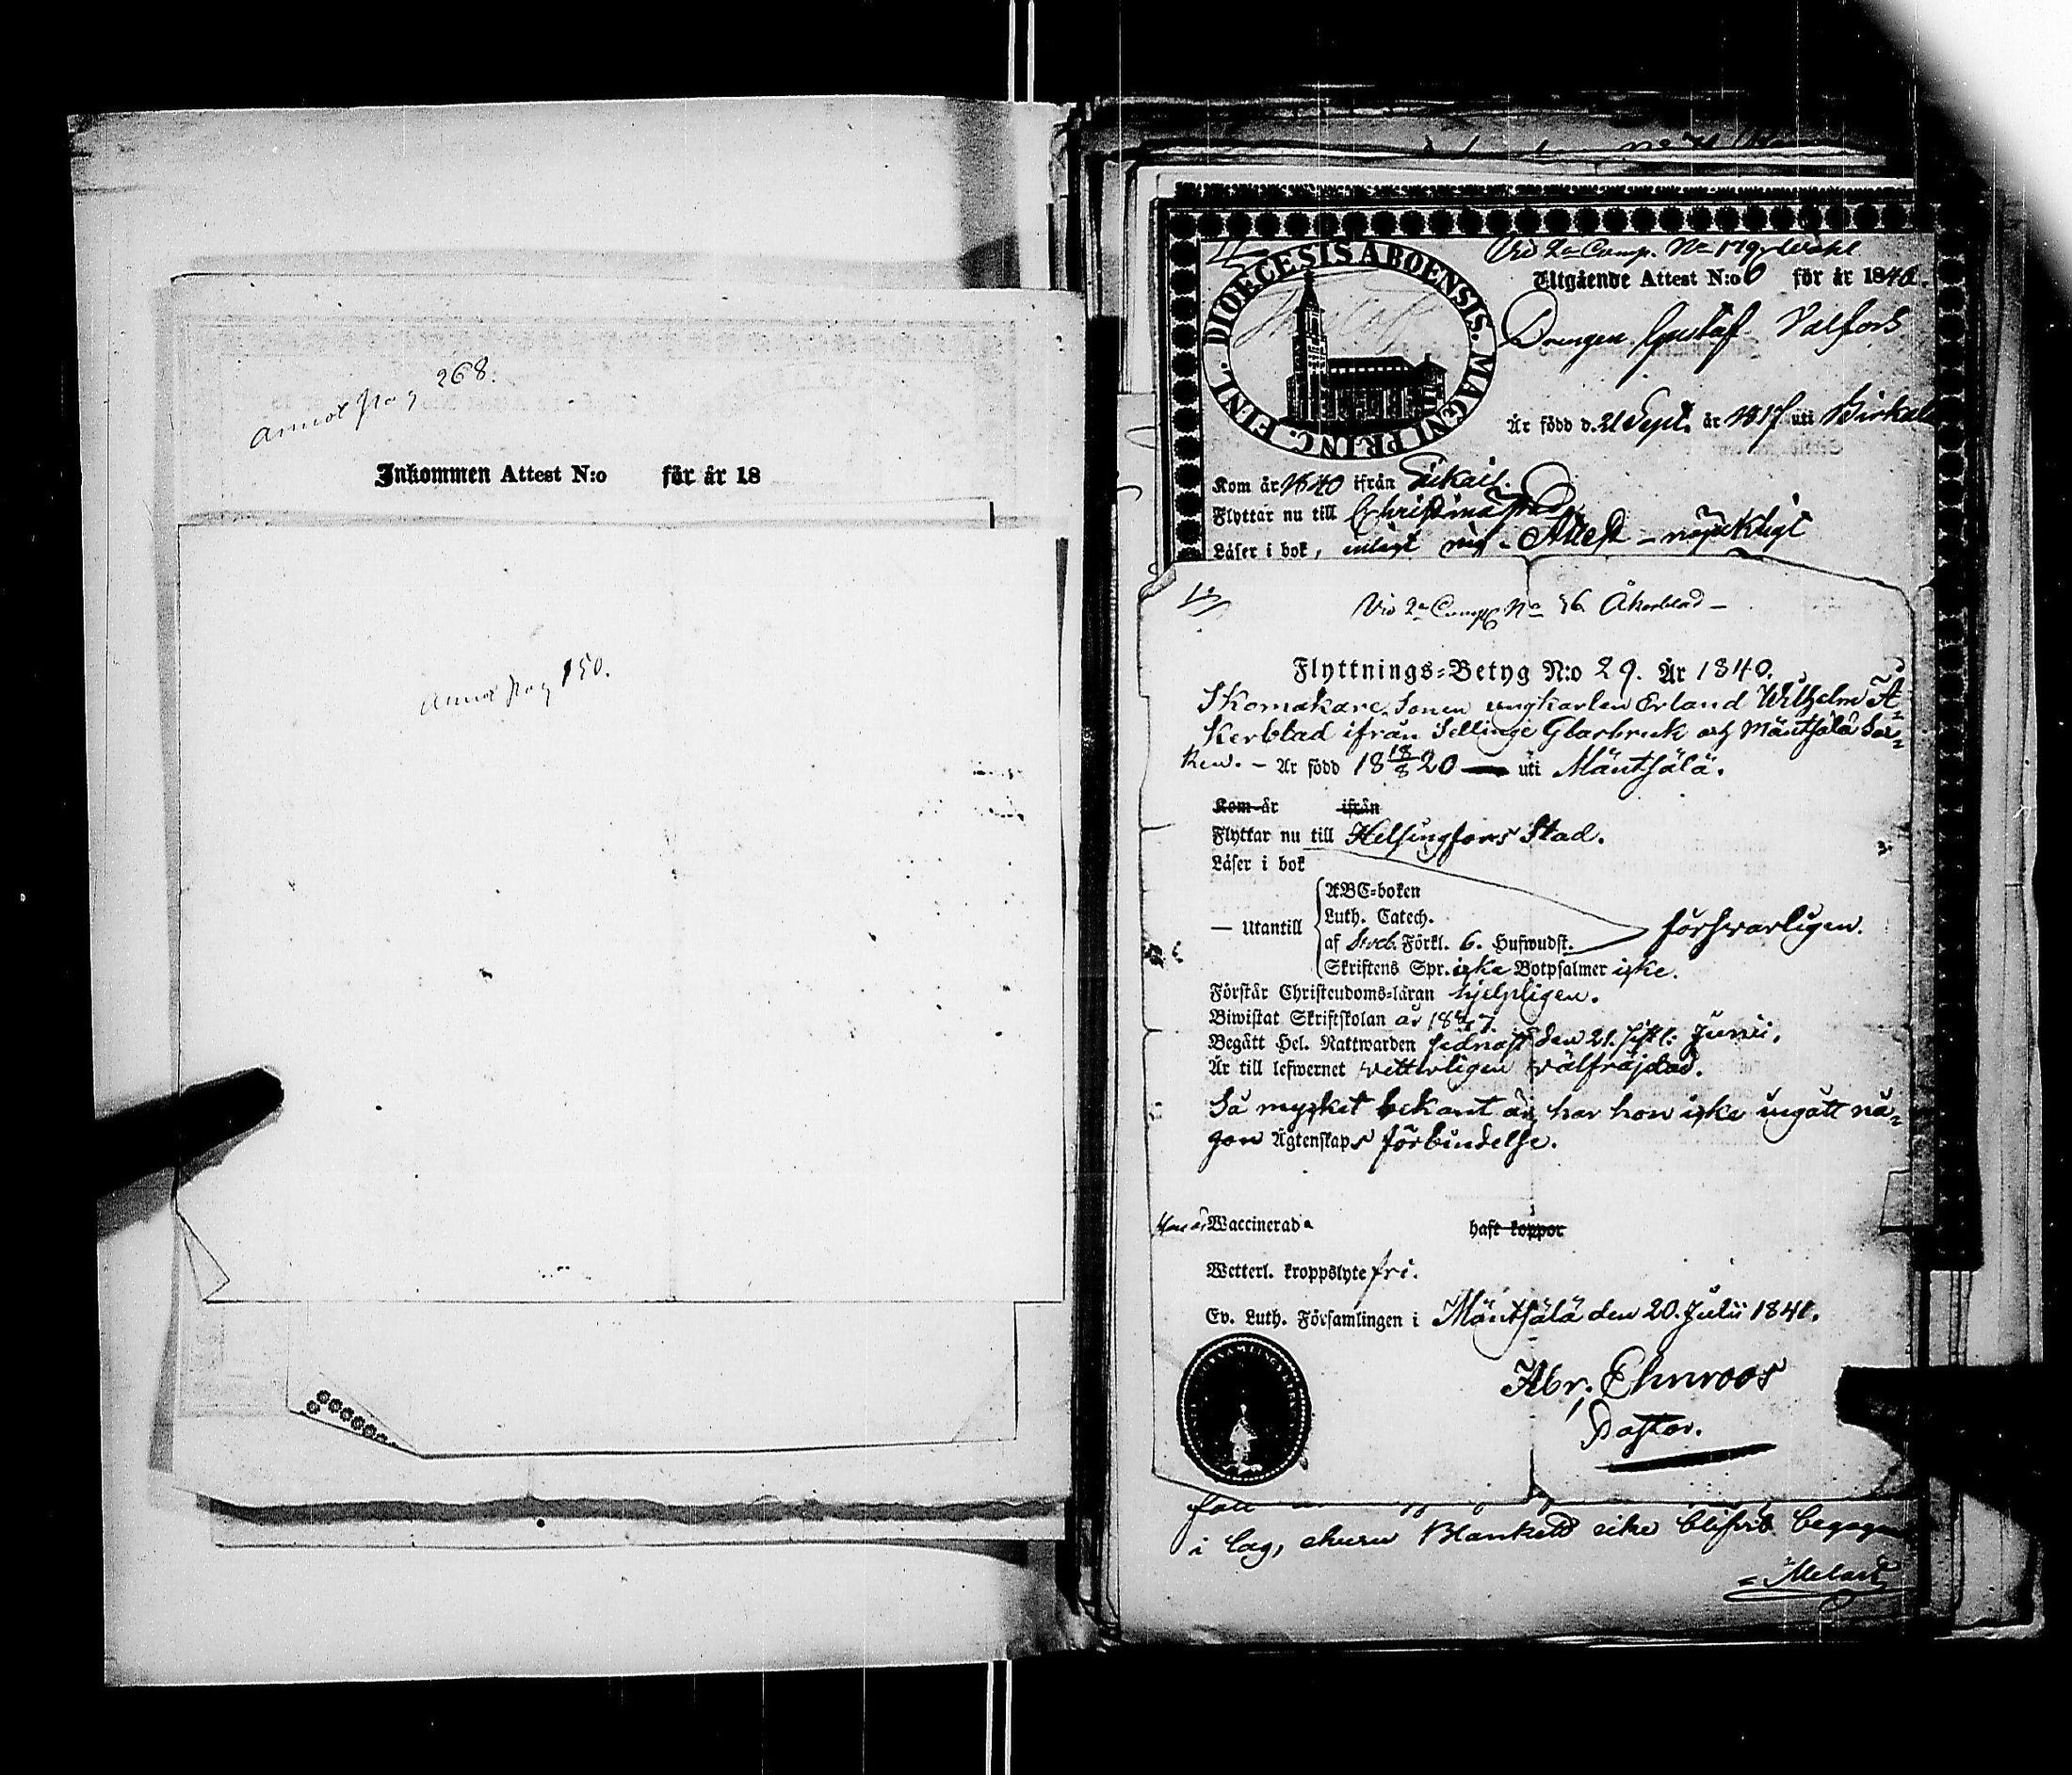 268.
Annot pag
Inkommen Attest N:o för år 18
Annot pag 150.
DIOECESIS ABOENSIS. MAGNI PRINC. FINL.
Vid 2a Comp. No 179
Utgående Attest N:o 6 för år 1840.
Drengen Gustaf Valfors
Är född d. 21 Sept. år 1817 uti Birkala
Kom år 1840 ifrån
Flyttar nu till Christinæstad
Läser i bok, enligt Attest
Vid 2a Comp No 56 Åkerblad
Flyttnings=Betyg N:o 29. År 1840.
Skomakare Sonen ungkarlen Erland Wilhelm Å=
kerblad ifrån Sellinge Glasbruk och Mäntsälä Soc=
ken. – Är född 18 18/8 20 — uti Mäntsälä.
Kom år ifrån
Flyttar nu till Helsingfors Stad.
Läser i bok
— Utantill
ABC=boken
Luth. Catech.
af Sveb. Förkl. 6. Hufwudst. försvarligen.
Skriftens Spr. icke Botpsalmer icke.
Förstår Christendoms=läran hjelpligen.
Biwistat Skriftskolan år 1837.
Begått Hel. Nattwarden sednast den 21. sistl. Junii.
Är till lefwernet vetterligen välfräjdad.
Så mycket bekant är, har hon icke ingått nå=
gon Ägtenskaps förbindelse.
Waccinerad haft koppor
Wetterl. kroppslyte fri.
Ev. Luth. Församlingen i Mäntsälä den 20. Julii 1841.
Abr. Ehnroos
Pastor.
i lag, Blankett
Melart